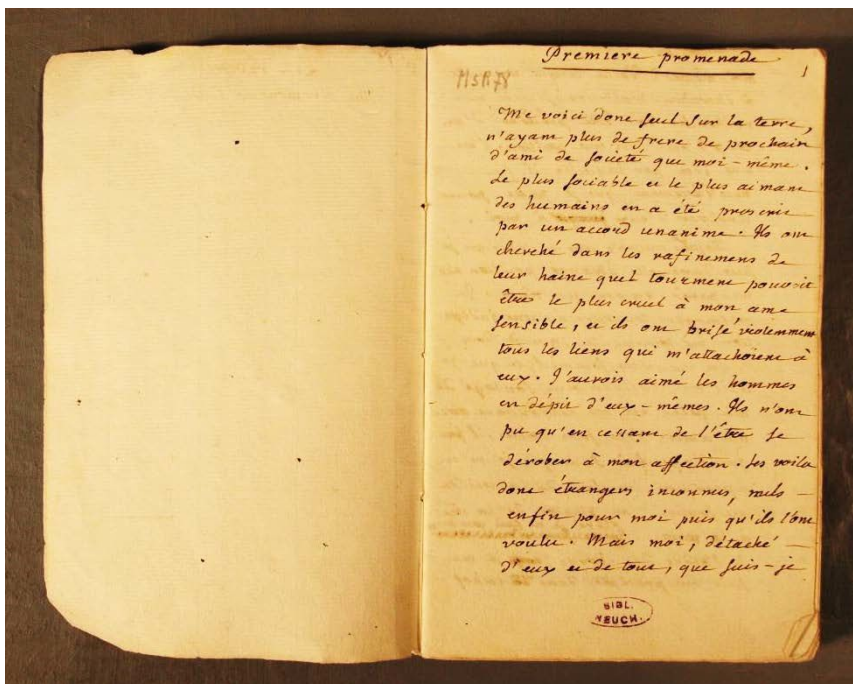 Premiere promenade
1
MsR78
Me voici donc seul sur la terre,
n'ayant plus de frere de prochain
d'ami de société que moi-même.
Le plus sociable et le plus aimant
des humains en a été proscrit
par un accord unanime. Ils ont
cherché dans les rafinemens de
leur haine quel tourment pouvoit
être le plus cruel à mon ame
sensible, et ils ont brisé violemment
tous les liens qui m'attachoient à
eux. J'aurois aimé les hommes
en dépit d'eux-mêmes. Ils n'ont
pu qu'en cessant de l'être se
dérober à mon affection. Les voila
donc étrangers inconnus, nuls -
enfin pour moi puis qu'ils l'ont
voulu. Mais moi, détaché -
d'eux et de tout, que suis-je
BIBL.
NEUCH.